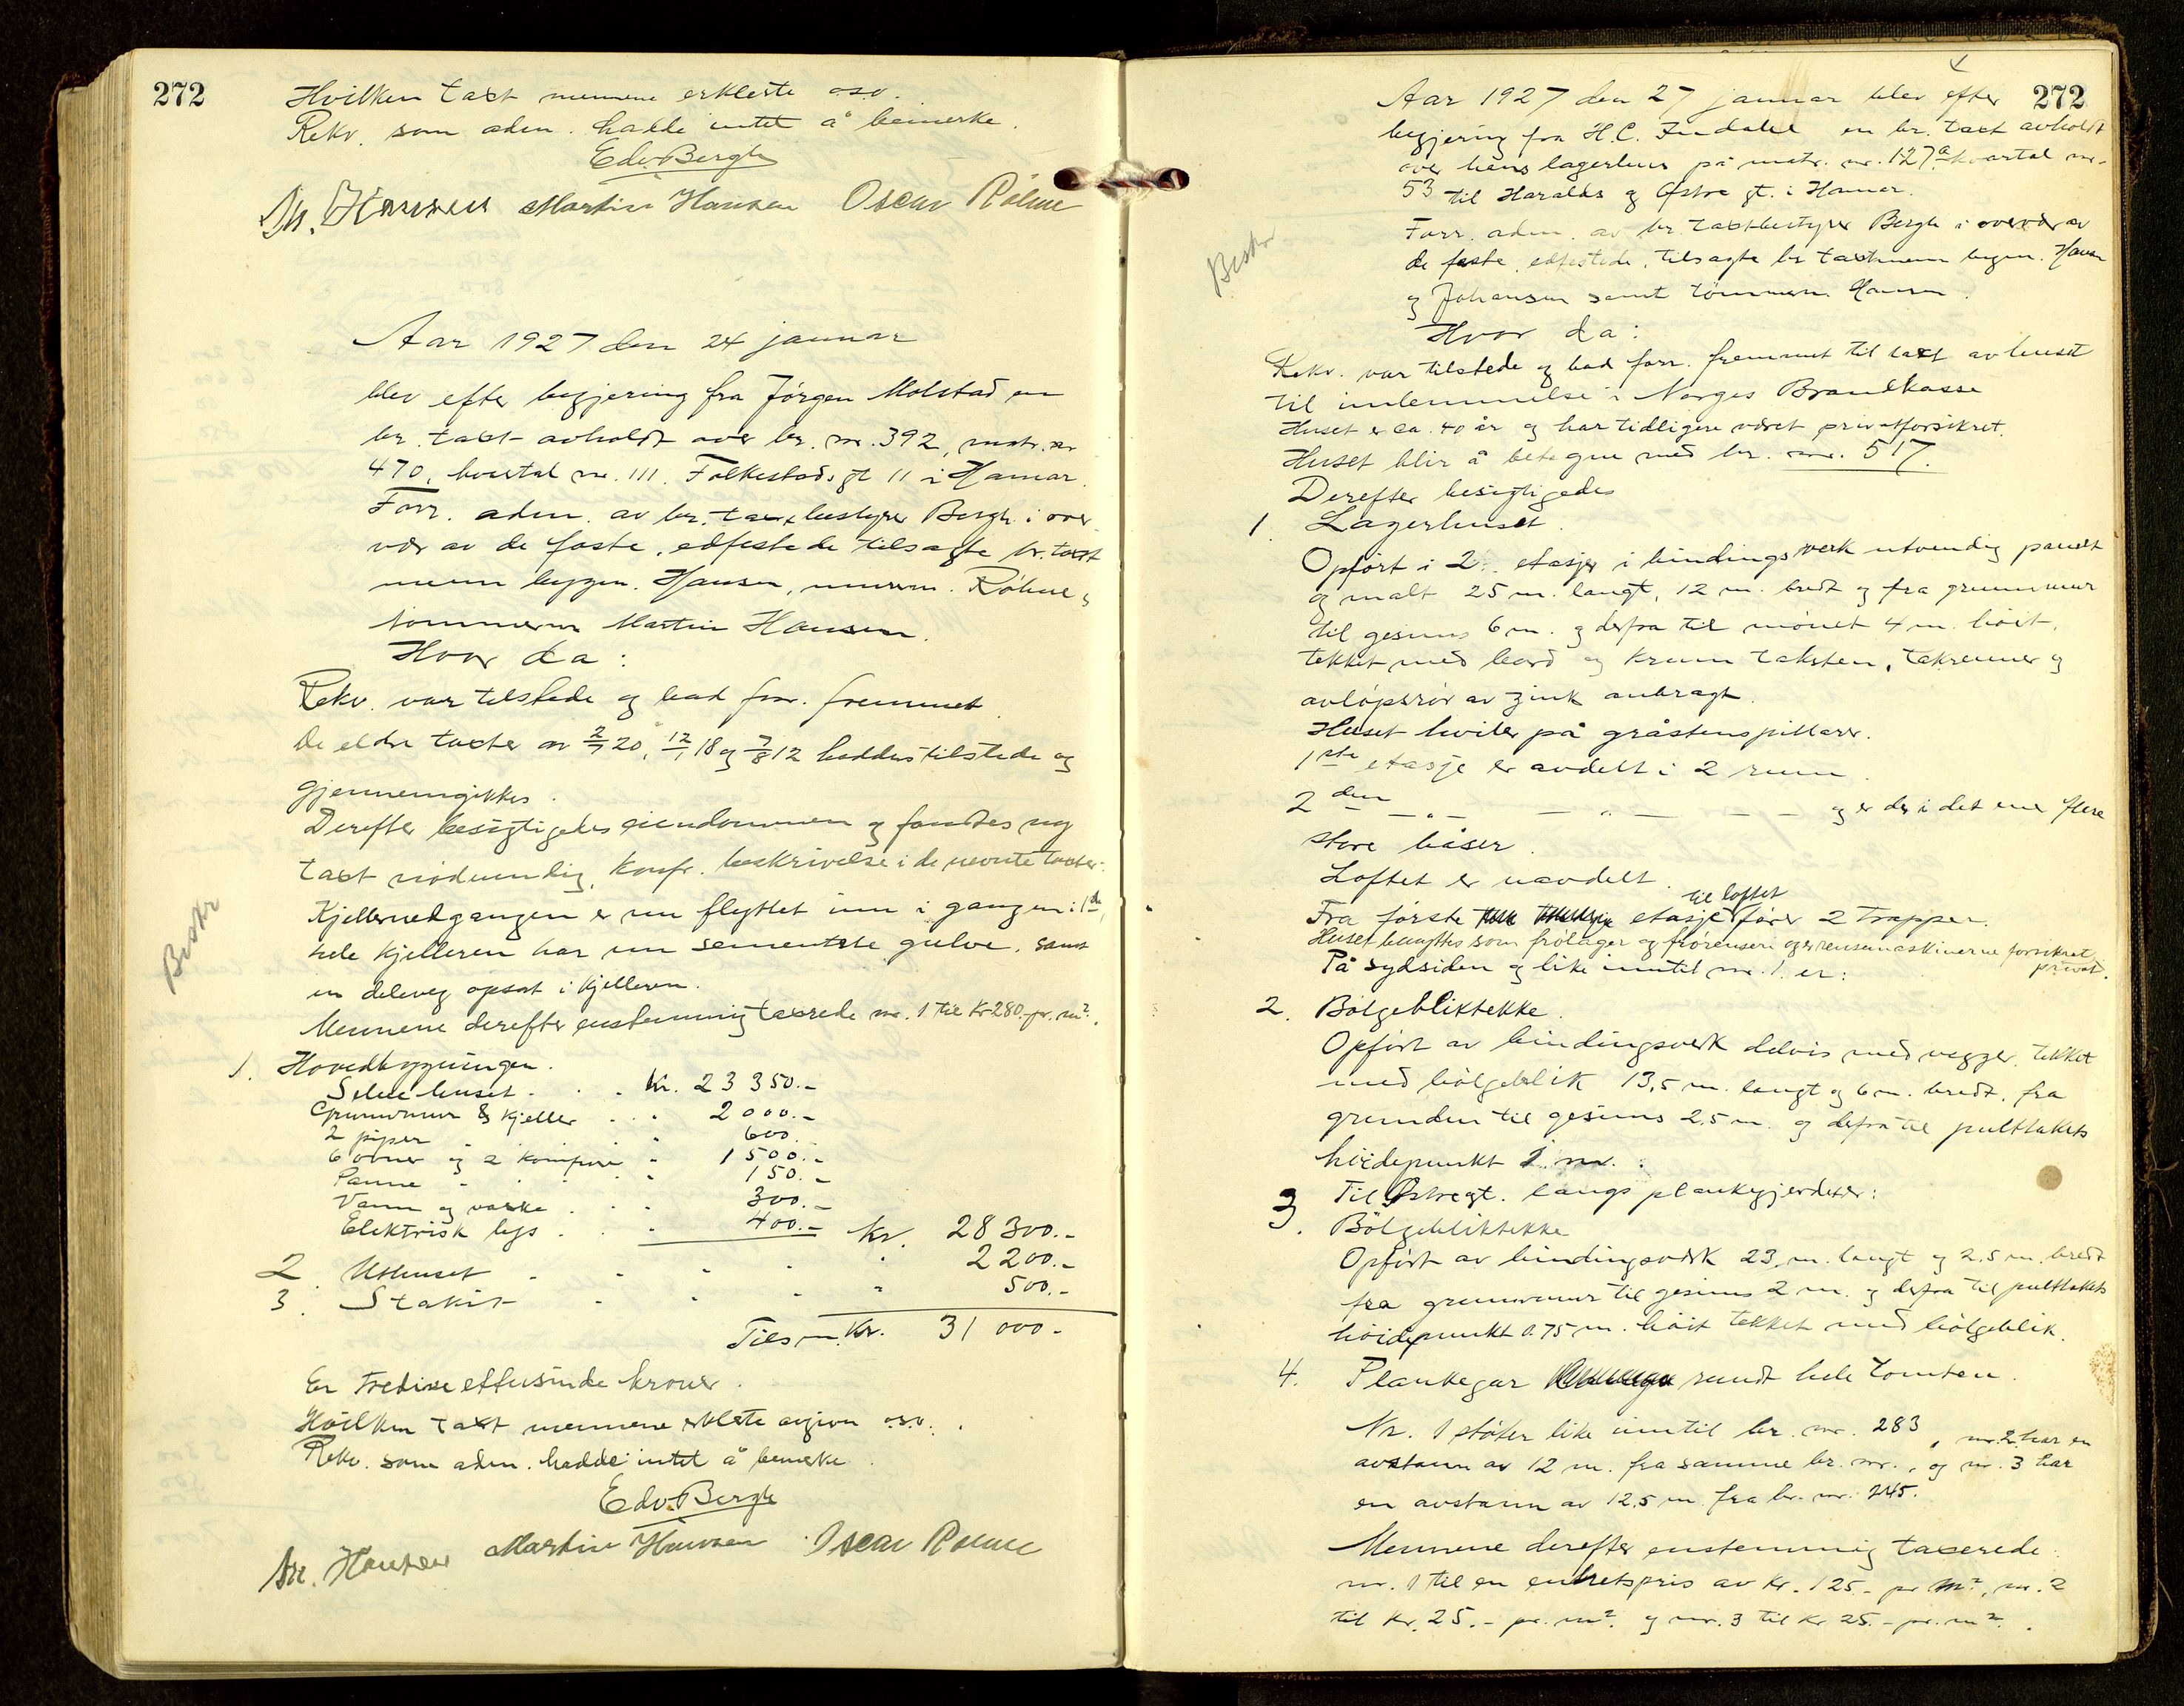 272
Hvilken taxt mennene erklerte osv.
Rekv. som aden. hadde intet å bemerke.
Edv. Bergh
M. Hansen Martin Hansen Oscar Röhne
Aar 1927 den 24 januar
blev efter begjering fra Jörgen Molstad en
br. taxt avholdt over br. nr. 392, matr. nr
470, kvartal nr. 111. Folkestads gt 11 i Hamar.
Forr. aden. av br. taxtbestyrer Bergh i over
vær av de faste, edfestede tilsagte br. taxt
menn byggm. Hansen, murerm. Röhne og
tömmerm Martin Hansen.
Hvor da:
Rekv. var tilstede og bad forr. fremmet.
De eldre taxter av 2/7 20, 12/1 18 og 7/8 12 haddes tilstede og
gjennemgikkes.
Derefter besigtigedes eiendommen og fandtes ny
taxt nödvendig, konfr. beskrivelse i de nevnte taxter.
Beskr
Kjellernedgangen er nu flyttet inn i gangen i 1ste,
hele kjelleren har nu sementerte gulve, samt
en deleveg opsat i kjelleren.
Mennene derefter enstemmig taxerede nr. 1 til Kr 280.- pr. m².
1. Hovedbygningen.
Selve huset . . . Kr. 23 350.-
Grunnmur & kjeller . . . 2 000.-
2 piper . . . 600.-
6 ovner og 2 komfyrer . 1 500.-
Panne . . . 150.-
Vann og vaske . . . 300.-
Elektrisk lys . . . 400.- Kr. 28 300.-
2. Uthuset . . . . " 2 200.-
3. Stakit . . . . " 500.-
Tilsm. Kr. 31 000.-
Er Tredive ettusinde kroner.
Hvilken taxt mennene erklerte avgiven osv.
Rekv. som aden. hadde intet å bemerke.
Edv. Bergh
M. Hansen Martin Hansen Oscar Röhne
272
Aar 1927 den 27 januar blev efter
begjering fra H.C. Indahl en br. taxt avholdt
over hans lagerhus på matr. nr. 127a kvartal nr.
53 til Haralds og Östre gt. i Hamar.
Forr. aden. av br. taxtbestyrer Bergh i overvær av
de faste, edfestede, tilsagte br taxtmenn byggm. Hansen
og Johansen samt tömmerm. Hansen.
Beskr
Hvor da:
Rekv. var tilstede og bad forr. fremmet til taxt av huset
til innlemmelse i Norges Brandkasse
Huset er ca. 40 år og har tidligere været privatforsikret.
Huset blir å betegne med br. nr. 517.
Derefter besigtigedes
1. Lagerhuset.
Opfört i 2 etasjer i bindingsverk utvendig panelt
og malt 25 m. langt, 12 m. bredt og fra grunnmur
til gesims 6 m. og derfra til mönet 4 m. höit,
tekket med bord og krum taksten, takrenner og
avlöpsrör av zink anbragt.
Huset hviler på gråstenspillarer.
1ste etasje er avdelt i 2 rum.
2den — " — — " — — og er der i det ene flere
store båser.
Loftet er uavdelt.
til loftet
Fra förste etasje förer 2 trapper.
Huset benyttes som frölager og frörenseri og er rensemaskinerne forsikret
privat.
På sydsiden og like inntil nr. 1. er:
2. Bölgebliktekke.
Opfört av bindingsverk delvis med vegger, tekket
med bölgeblik 13,5 m. langt og 6 m. bredt, fra
grunden til gesims 2,5 m. og derfra til pulttakets
höidepunkt 1 m.:
Til Östregt. langs plankegjerdet er:
3. Bölgebliktekke
Opfört av bindingsverk 23, m. langt og 2,5 m. bredt
fra grunnmur til gesims 2 m. og derfra til pulttakets
höidepunkt 0.75 m. höit tekket med bölgeblik.
4. Plankegar rundt hele tomten.
Nr. 1 stöter like inntil br. nr. 283, nr. 2 har en
avstann av 12 m. fra samme br. nr., og nr. 3 har
en avstann av 12,5 m fra br. nr. 245.
Mennene derefter enstemmig taxerede
nr. 1 til en enhetspris av Kr. 125.- pr m², nr. 2
til Kr. 25.- pr. m². og nr. 3 til Kr 25.- pr. m².